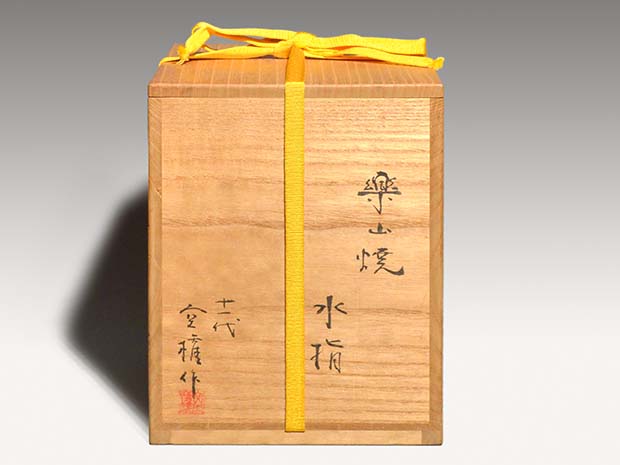 樂山焼
水指
十一代
空權作